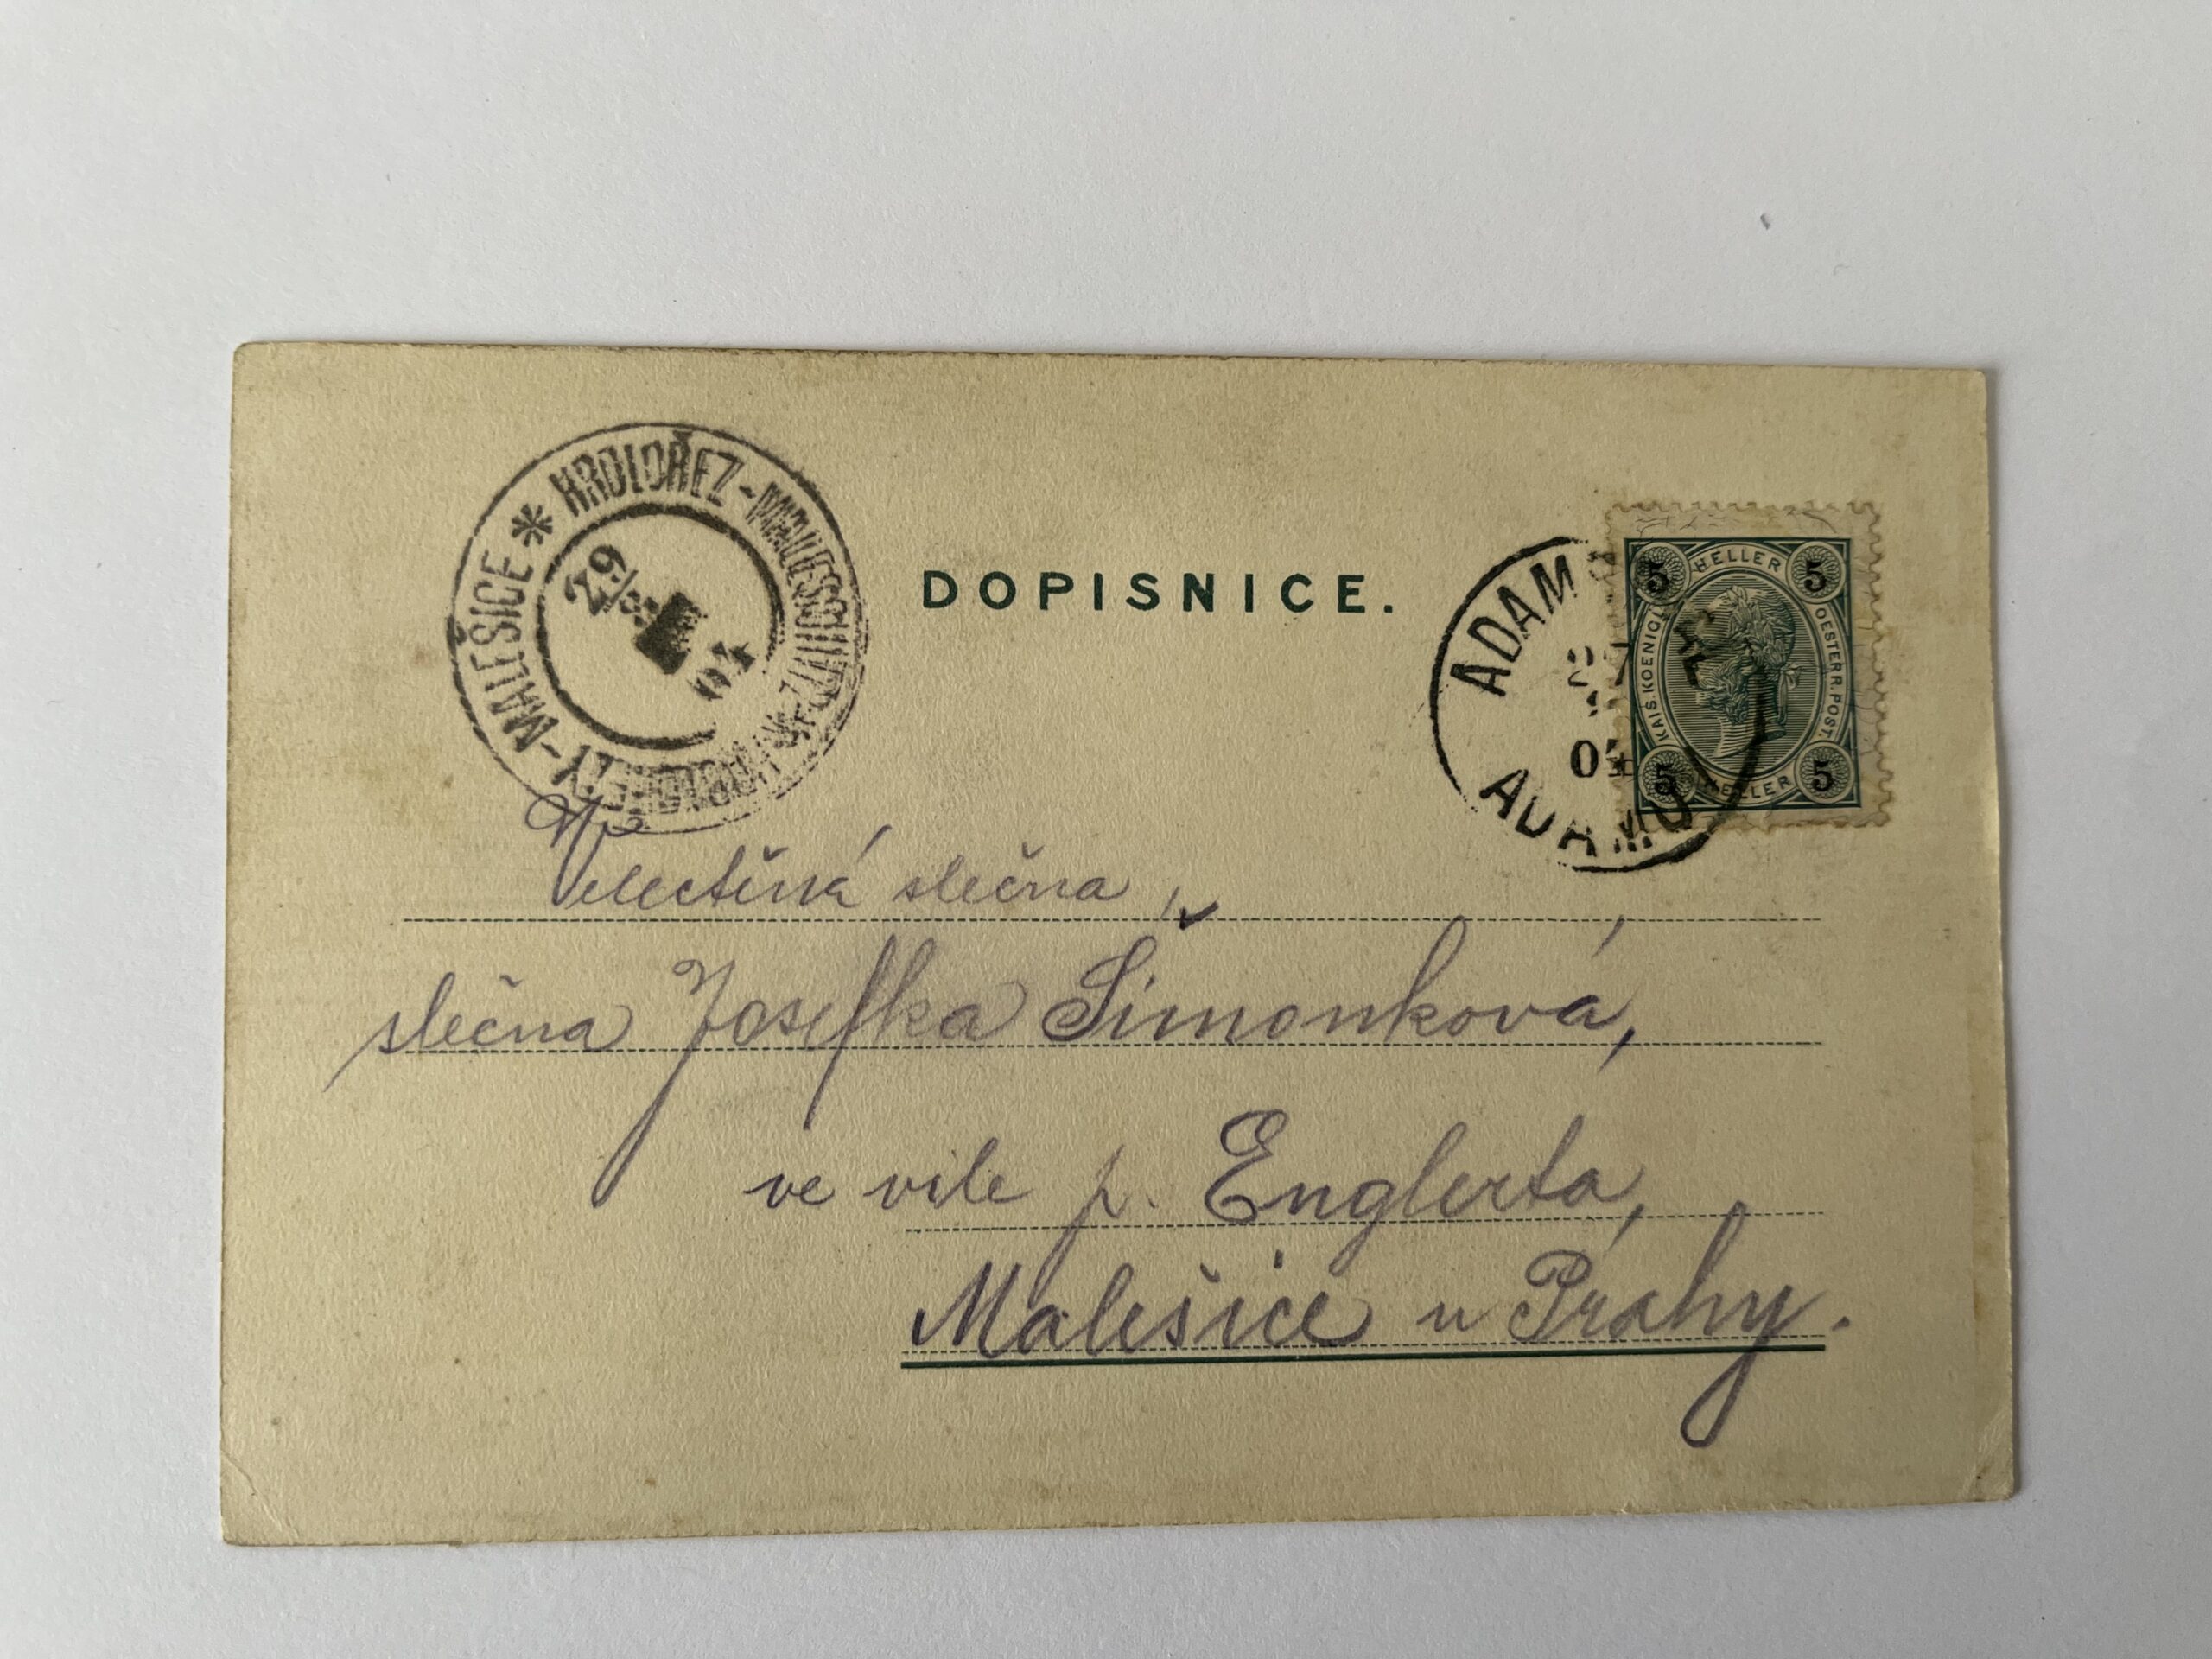 HRDLOŘEZ-MALESCHITZ * HRDLOŘEZY-MALEŠICE *
29
04
DOPISNICE.
ADAM
2
04
ADAM
5 HELLER 5
KAIS. KOENIGL. OESTERR. POST.
5 HELLER 5
Velectěná slečna,
slečna Josefka Šimonková,
ve vile p. Englerta,
Malešice u Prahy.